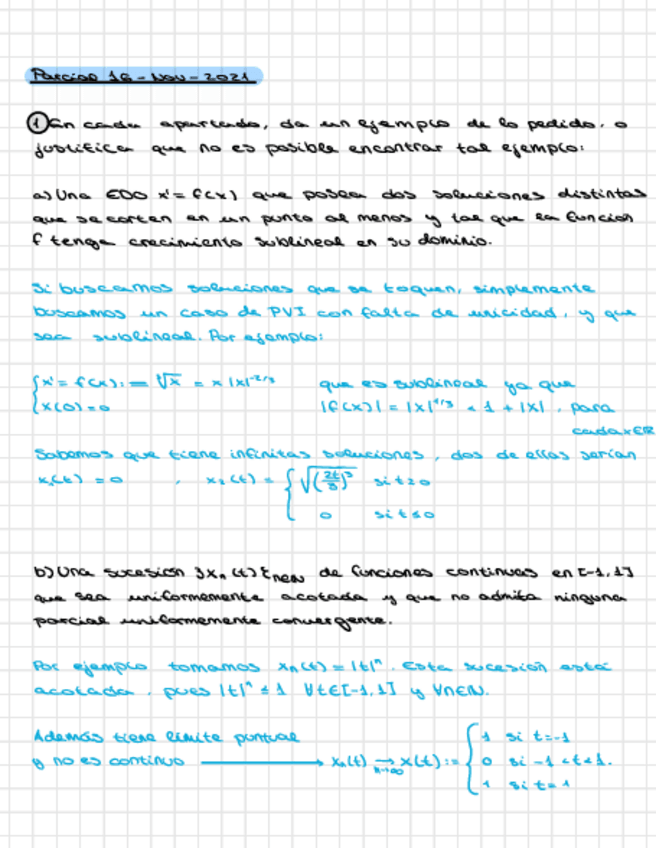 Parcial 16 - Nov - 2021
① En cada apartado, da un ejemplo de lo pedido, o
justifica que no es posible encontrar tal ejemplo:
a) Una EDO x' = f(x) que posea dos soluciones distintas
que se corten en un punto al menos y tal que la función
f tenga crecimiento sublineal en su dominio.
Si buscamos soluciones que se toquen, simplemente
buscamos un caso de PVI con falta de unicidad, y que
sea sublineal. Por ejemplo:
{ x' = f(x) := ∛x = x |x|^{-2/3} que es sublineal ya que
x(0) = 0 |f(x)| = |x|^{1/3} < 1 + |x|, para
cada x∈ℝ
Sabemos que tiene infinitas soluciones, dos de ellas serían
x₁(t) = 0 , x₂(t) = { √(2t/3)³ si t≥0
0 si t≤0
b) Una sucesión {xₙ(t)}ₙ∈ℕ de funciones continuas en [-1,1]
que sea uniformemente acotada y que no admita ninguna
parcial uniformemente convergente.
Por ejemplo tomamos xₙ(t) = |t|ⁿ. Esta sucesión está
acotada, pues |t|ⁿ ≤ 1 ∀t∈[-1,1] y ∀n∈ℕ.
Además tiene límite puntual 1 si t=-1
y no es continuo → xₙ(t) →_{n→∞} x(t) := { 0 si -1<t<1.
1 si t=1